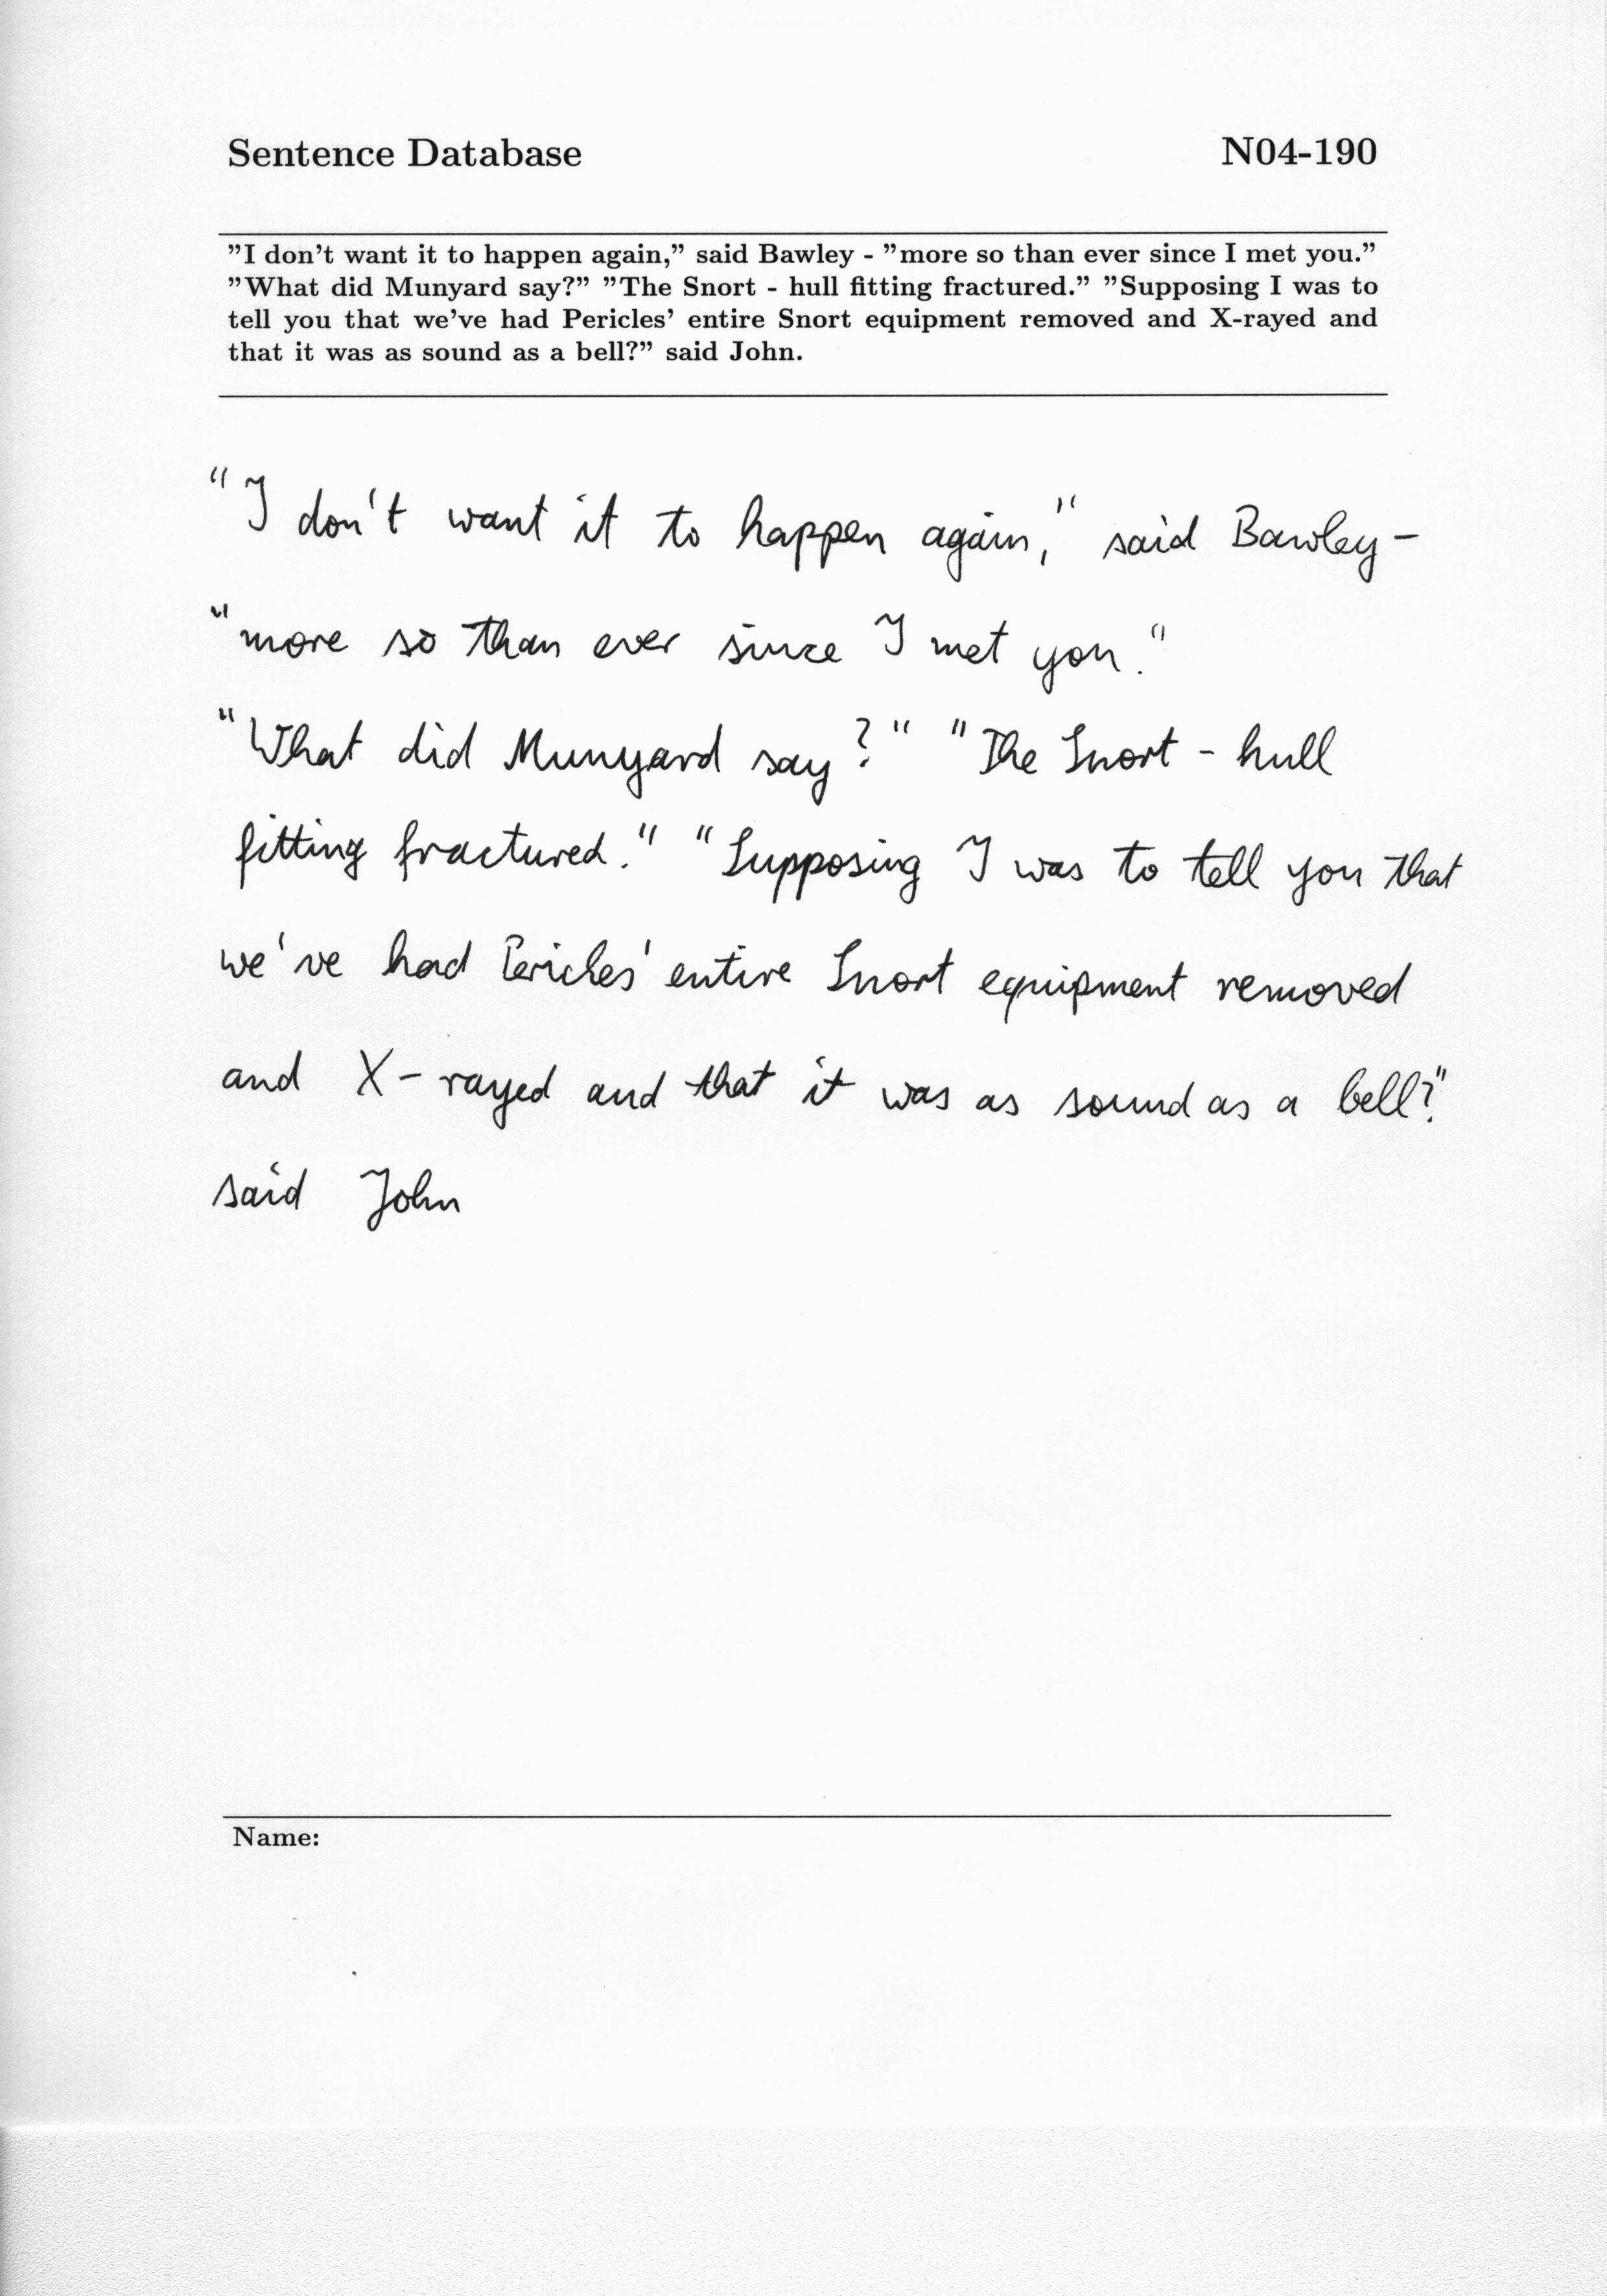 Sentence Database N04-190
"I don't want it to happen again," said Bawley - "more so than ever since I met you."
"What did Munyard say?" "The Snort - hull fitting fractured." "Supposing I was to
tell you that we've had Pericles' entire Snort equipment removed and X-rayed and
that it was as sound as a bell?" said John.
"I don't want it to happen again," said Bawley -
"more so than ever since I met you."
"What did Munyard say?" "The Snort - hull
fitting fractured." "Supposing I was to tell you that
we've had Pericles' entire Snort equipment removed
and X-rayed and that it was as sound as a bell?"
said John
Name: